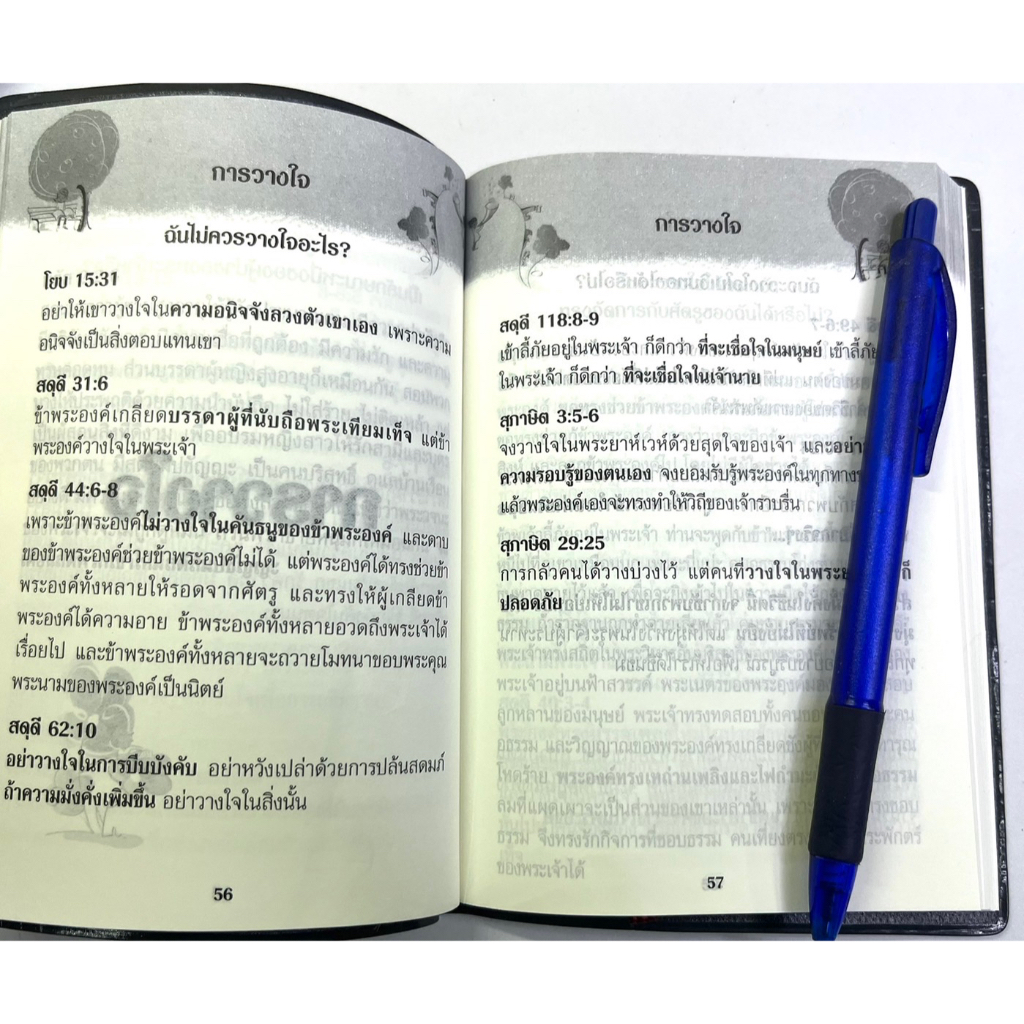 การวางใจ
ฉันไม่ควรวางใจอะไร?
โยบ 15:31
อย่าให้เขาวางใจในความอนิจจังลวงตัวเขาเอง เพราะความ
อนิจจังเป็นสิ่งตอบแทนเขา
สดุดี 31:6
ข้าพระองค์เกลียดบรรดาผู้ที่นับถือพระเทียมเท็จ แต่ข้า
พระองค์วางใจในพระเจ้า
สดุดี 44:6-8
เพราะข้าพระองค์ไม่วางใจในคันธนูของข้าพระองค์ และดาบ
ของข้าพระองค์ช่วยข้าพระองค์ไม่ได้ แต่พระองค์ได้ทรงช่วยข้า
พระองค์ทั้งหลายให้รอดจากศัตรู และทรงให้ผู้เกลียดข้า
พระองค์ได้ความอาย ข้าพระองค์ทั้งหลายอวดถึงพระเจ้าได้
เรื่อยไป และข้าพระองค์ทั้งหลายจะถวายโมทนาขอบพระคุณ
พระนามของพระองค์เป็นนิตย์
สดุดี 62:10
อย่าวางใจในการบีบบังคับ อย่าหวังเปล่าด้วยการปล้นสดมภ์
ถ้าความมั่งคั่งเพิ่มขึ้น อย่าวางใจในสิ่งนั้น
56
การวางใจ
สดุดี 118:8-9
เข้าลี้ภัยอยู่ในพระเจ้า ก็ดีกว่า ที่จะเชื่อใจในมนุษย์ เข้าลี้ภัย
ในพระเจ้า ก็ดีกว่า ที่จะเชื่อใจในเจ้านาย
สุภาษิต 3:5-6
จงวางใจในพระยาห์เวห์ด้วยสุดใจของเจ้า และอย่า
ความรอบรู้ของตนเอง จงยอมรับรู้พระองค์ในทุกทาง
แล้วพระองค์เองจะทรงทำให้วิถีของเจ้าราบรื่น
สุภาษิต 29:25
การกลัวคนได้วางบ่วงไว้ แต่คนที่วางใจในพระ ก็
ปลอดภัย
57